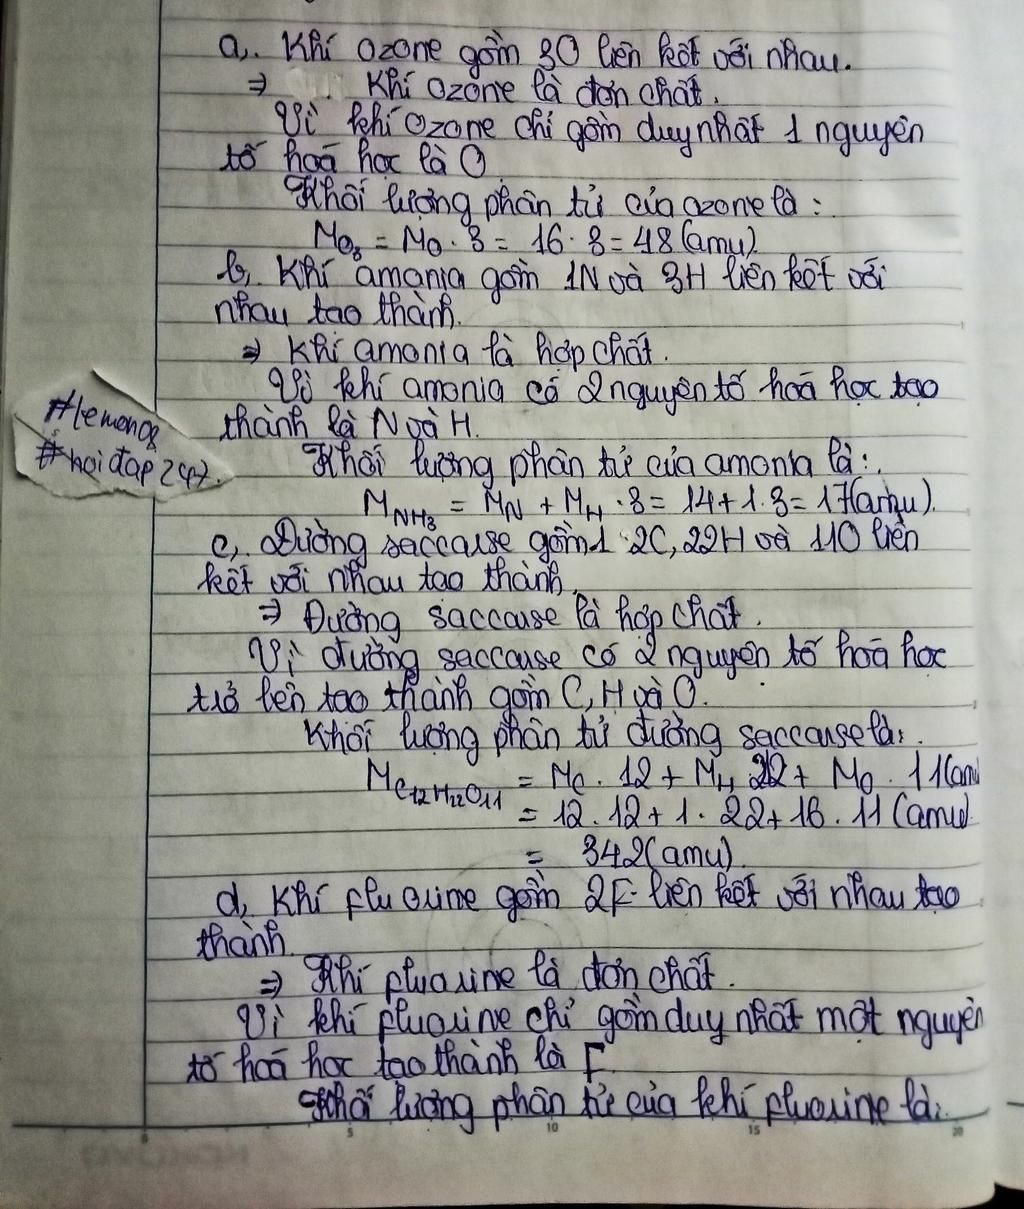 a,. Khí ozone gồm 3O liên kết với nhau.
⇒ Khí ozone là đơn chất.
Vì khí ozone chỉ gồm duy nhất 1 nguyên
tố hoá học là O
Khối lượng phân tử của ozone là:
M_O₃ = M_O . 3 = 16 . 3 = 48 (amu)
b,. Khí amonia gồm 1N và 3H liên kết với
nhau tạo thành.
⇒ Khí amonia là hợp chất.
Vì khí amonia có 2 nguyên tố hoá học tạo
thành là N và H.
#lemon08
#hoidap247.
Khối lượng phân tử của amonia là:.
M_NH₃ = M_N + M_H . 3 = 14 + 1 . 3 = 17 (amu).
c,. Đường saccause gồm 12C, 22H và 11O liên
kết với nhau tạo thành.
⇒ Đường saccause là hợp chất.
Vì đường saccause có 2 nguyên tố hoá học
trở lên tạo thành gồm C, H và O.
Khối lượng phân tử đường saccause là:.
M_C₁₂H₂₂O₁₁ = M_C . 12 + M_H 22 + M_O . 11 (amu
= 12 . 12 + 1 . 22 + 16 . 11 (amu)
= 342 (amu)
d, Khí fluorine gồm 2F liên kết với nhau tạo
thành
⇒ Khí fluorine là đơn chất.
Vì khí fluorine chỉ gồm duy nhất một nguyên
tố hoá học tạo thành là F
Khối lượng phân tử của khí fluorine là:
5 10 15 20